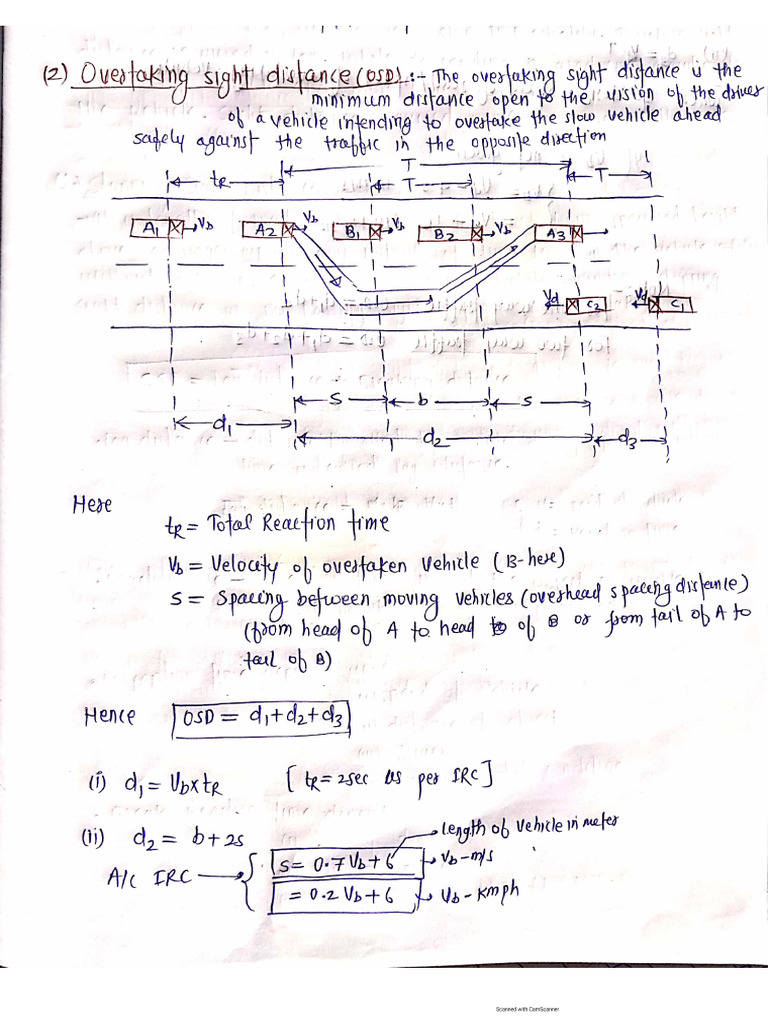 (2) Overtaking sight distance (OSD) :- The overtaking sight distance is the
minimum distance open to the vision of the driver
of a vehicle intending to overtake the slow vehicle ahead
safely against the traffic in the opposite direction
T
tR T T
A1 Vb A2 Vb B1 Vb B2 Vb A3
Vd C2 Vd C1
S b S
d1 d2 d3
Here
tR = Total Reaction time
Vb = Velocity of overtaken vehicle (B-here)
S = Spacing between moving vehicles (overhead spacing distance)
(from head of A to head of B or from tail of A to
tail of B)
Hence OSD = d1+d2+d3
(i) d1 = Vb×tR [ tR = 2sec as per IRC]
(ii) d2 = b+2s
length of vehicle in meter
A/C IRC S = 0.7 Vb + 6 Vb - m/s
= 0.2 Vb + 6 Vb - Kmph
Scanned with CamScanner